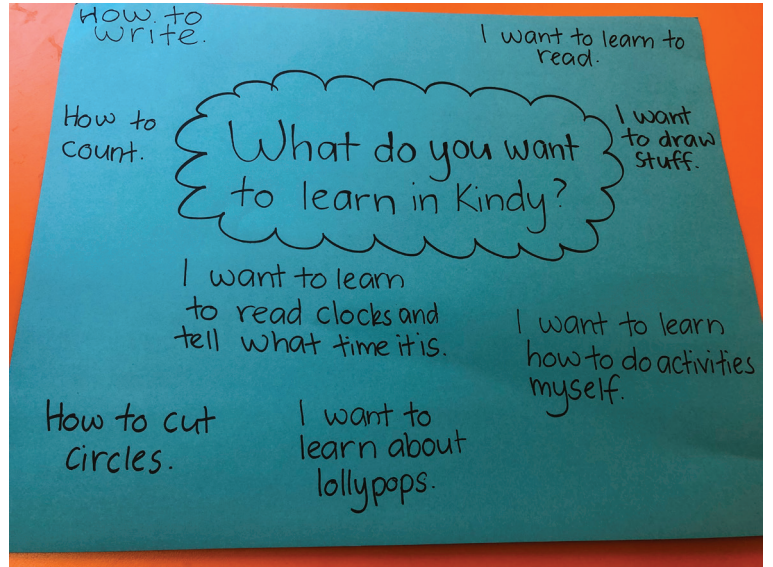 How to
write.
I want to learn to
read.
How to
count.
What do you want
to learn in Kindy?
I want
to draw
stuff.
I want to learn
to read clocks and
tell what time it is.
I want to learn
how to do activities
myself.
How to cut
circles.
I want to
learn about
lollypops.